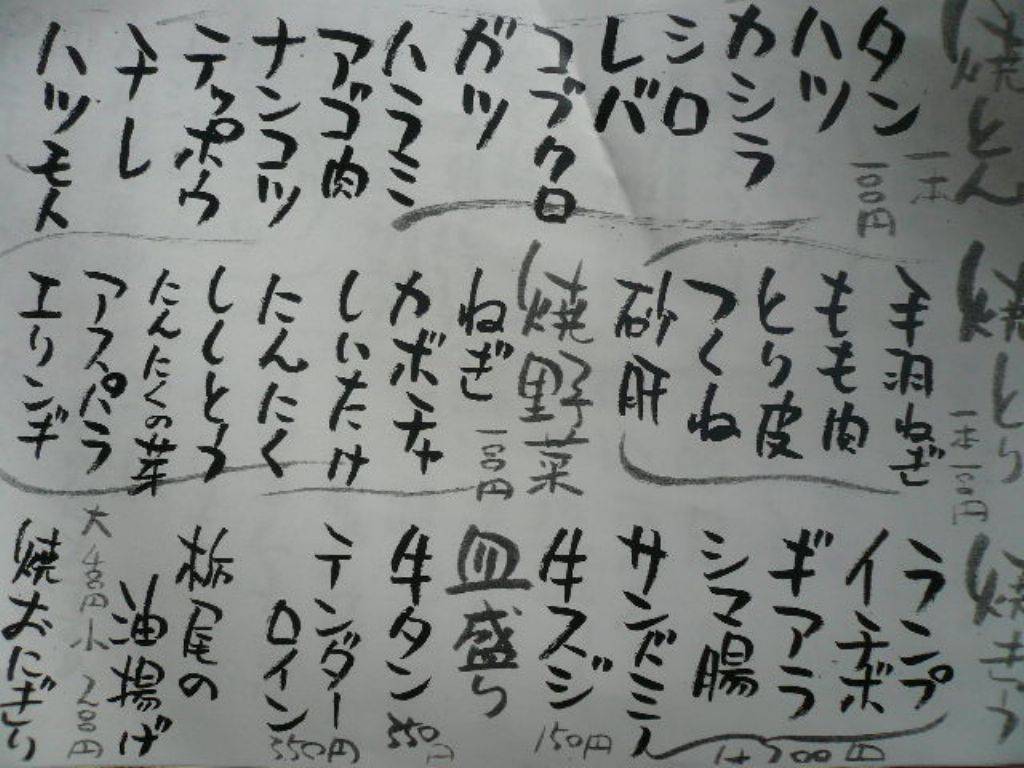 焼とん
一本
一〇〇円
タン
ハツ
カシラ
シロ
レバ
コブクロ
ガツ
ハラミ
アゴ肉
ナンコツ
テッポウ
チレ
ハツモト
焼とり
一本一〇〇円
手羽ねぎ
もも肉
とり皮
つくね
砂肝
焼野菜
一〇〇円
ねぎ
カボチャ
しいたけ
にんにく
ししとう
にんにくの芽
アスパラ
エリンギ
焼ぎう
ランプ
イチボ
ギアラ
シマ腸
サンドミノ
1本200円
牛スジ
150円
皿盛り
牛タン
550円
テンダーロイン
550円
栃尾の
油揚げ
大400円小200円
焼おにぎり